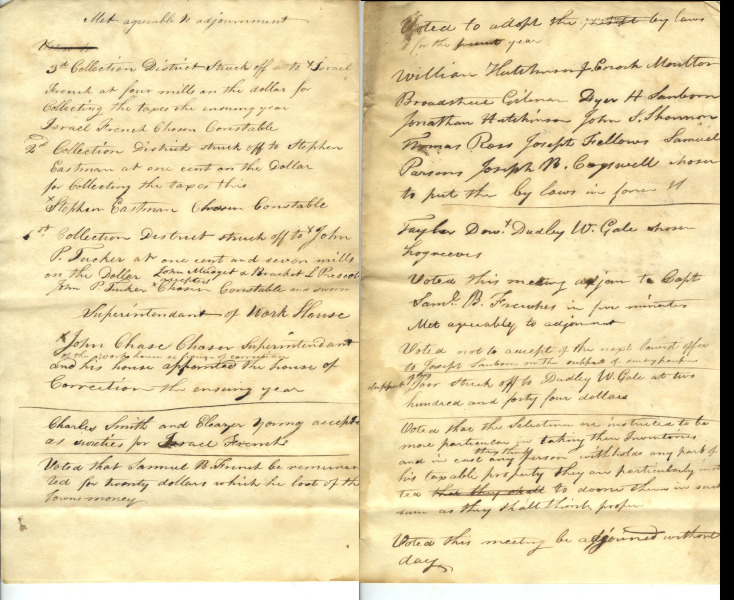 Met agreeable to adjournment
3rd Collection District Struck off to Israel
French at four mills on the dollar for
Collecting the taxes the ensuing year
Israel French Chosen Constable
2nd Collection Districts struck off to Stephen
Eastman at one cent on the Dollar
for Collecting the taxes this
Stephen Eastman Chosen Constable
1st Collection District struck off to John
P. Tucker at one cent and seven mills
on the Dollar John & Bracket L Prescot
accepted
John P Tucker Chosen Constable and sworn
Superintendant of Work House
John Chase Chosen Superintendant
of the work house or house of correction
and his house appointed the house of
Correction the ensuing year
Charles Smith and Eleazer Young accepted
as sureties for Israel French
Voted that Samuel B French be remunera
ted for twenty dollars which he lost of the
Towns money
Voted to adopt the by laws
for the year
William Hutchinson Enoch Moulton
Broadstreet Gilman Dyer H Sanborn
Jonathan Hutchinson John S. Shannon
Thomas Ross Joseph Fellows Samuel
Parsons Joseph B. Cogswell chosen
to put the by laws in force
Taylor Dow Dudley W. Gale chosen
hogreeves
Voted this meeting adjorn to Capt
Saml. B. Frenches in five minutes
Met agreeably to adjornment
Voted not to accept of the next lowest offer
to Joseph Sanborn on the support of
support of Poor struck off to Dudley W. Gale at two
hundred and forty four dollars
Voted that the Selectmen are instructed to be
more particular in taking their Inventories
and in case any Person withholds any part of
his taxable property they are particularly
ted that they shall to doom them in such
sum as they shall think proper
Voted this meeting be adjourned without
day